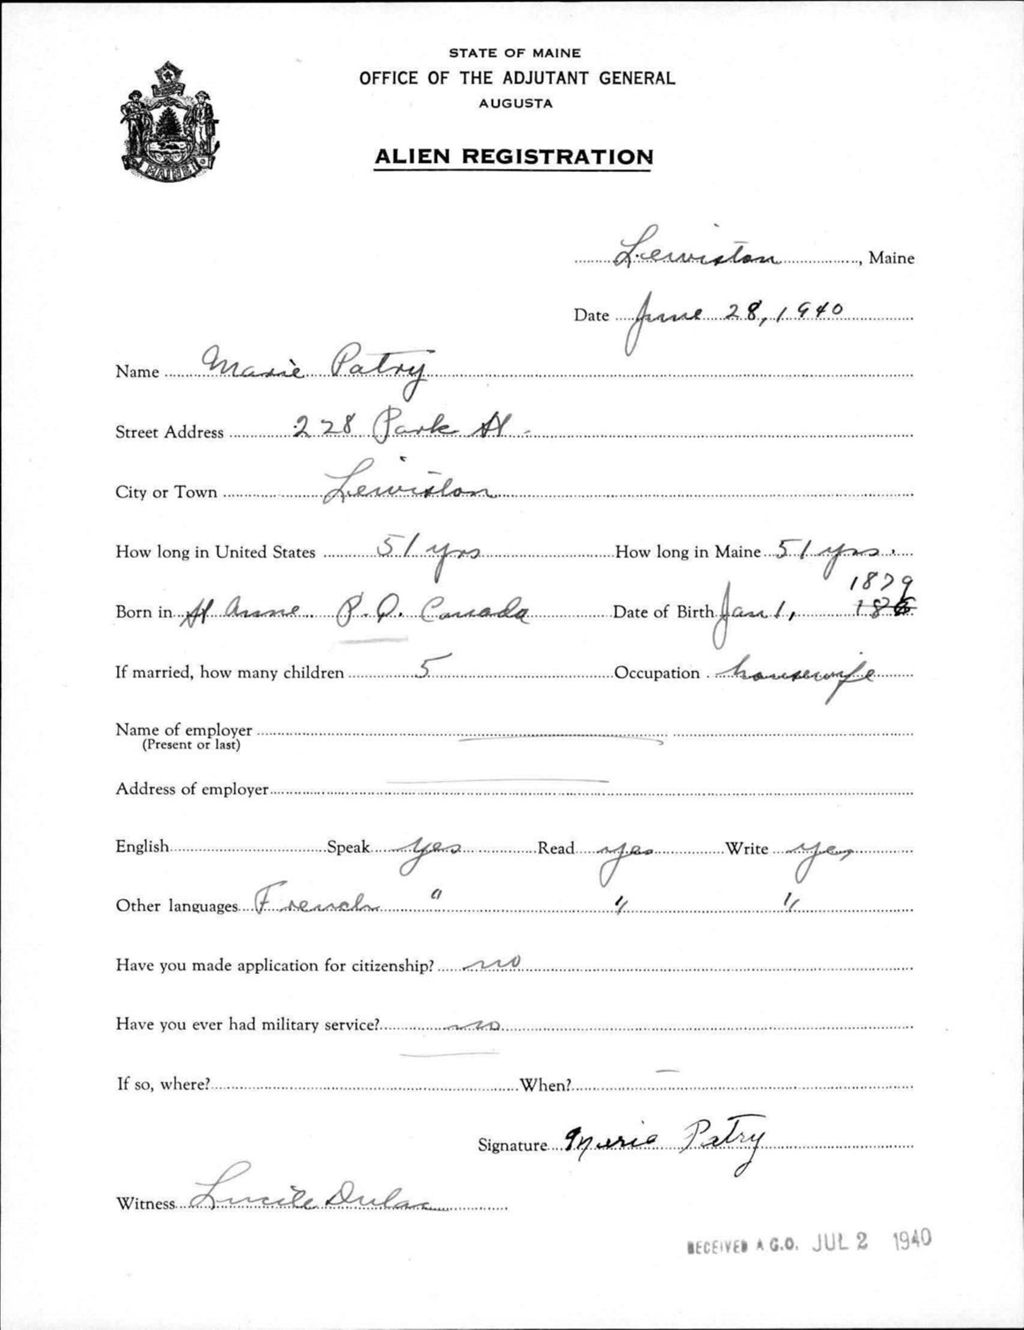 STATE OF MAINE
OFFICE OF THE ADJUTANT GENERAL
AUGUSTA
ALIEN REGISTRATION
MAINE
Lewiston, Maine
Date June 28, 1940
Name Marie Patry
Street Address 228 Park St.
City or Town Lewiston
How long in United States 51 yrs How long in Maine 51 yrs.
1879
Born in St Anne P.Q. Canada Date of Birth Jan 1,
If married, how many children 5 Occupation housewife
Name of employer
(Present or last)
Address of employer
English Speak yes Read yes Write yes
Other languages French " " "
Have you made application for citizenship? no
Have you ever had military service? no
If so, where? When?
Signature Marie Patry
Witness Lucile Dulac
RECEIVED A.G.O. JUL 2 1940